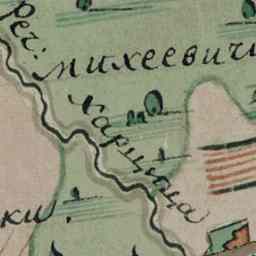 реч:
михеевич
харцица
ки